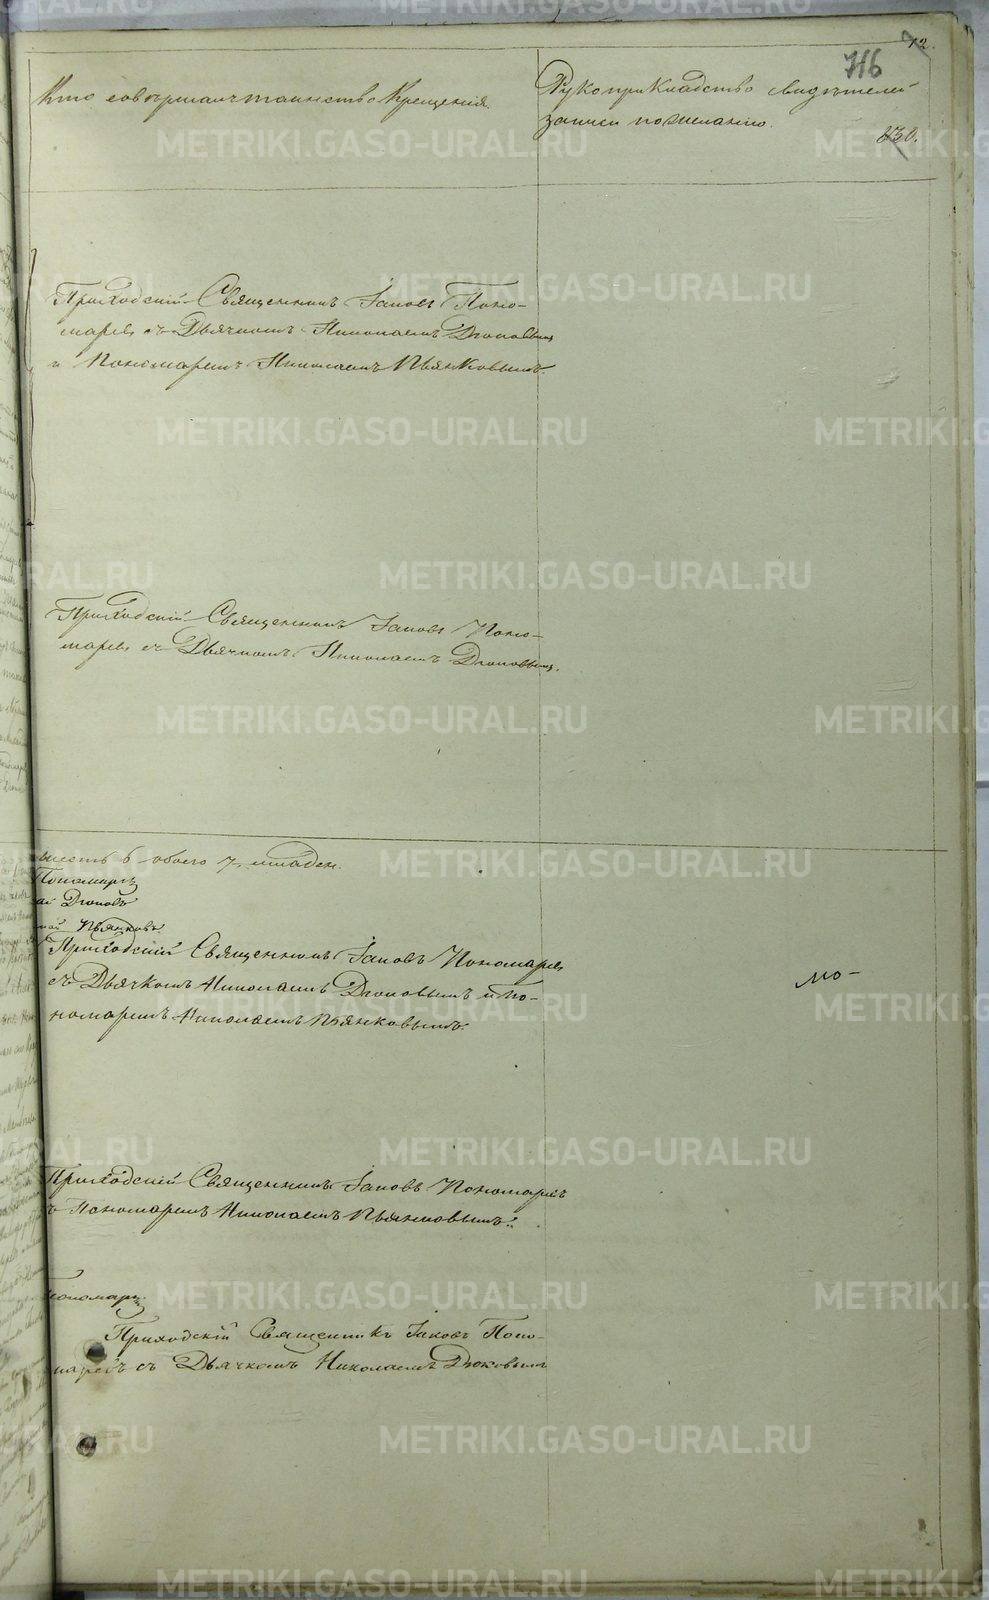 12.
716
830.
Кто совершалъ таинство Крещенія.
Рукоприкладство свидѣтелей
записи по желанію.
Приходскій Священникъ Іаковъ Поно-
маревъ съ Дьячкомъ Николаемъ Дюковымъ
и Пономаремъ Николаемъ Пьянковымъ.
Приходскій Священникъ Іаковъ Поно-
маревъ съ Дьячкомъ Николаемъ Дюковымъ.
6 обоего 7 младен.
Пономаревъ
Дюковъ
Пьянковъ
Приходскій Священникъ Іаковъ Пономаревъ
съ Дьячкомъ Николаемъ Дюковымъ и По-
номаремъ Николаемъ Пьянковымъ.
мо-
Приходскій Священникъ Іаковъ Пономаревъ
съ Пономаремъ Николаемъ Пьянковымъ.
Приходскій Священникъ Іаковъ Поно-
маревъ съ Дьячкомъ Николаемъ Дюковымъ
METRIKI.GASO-URAL.RU